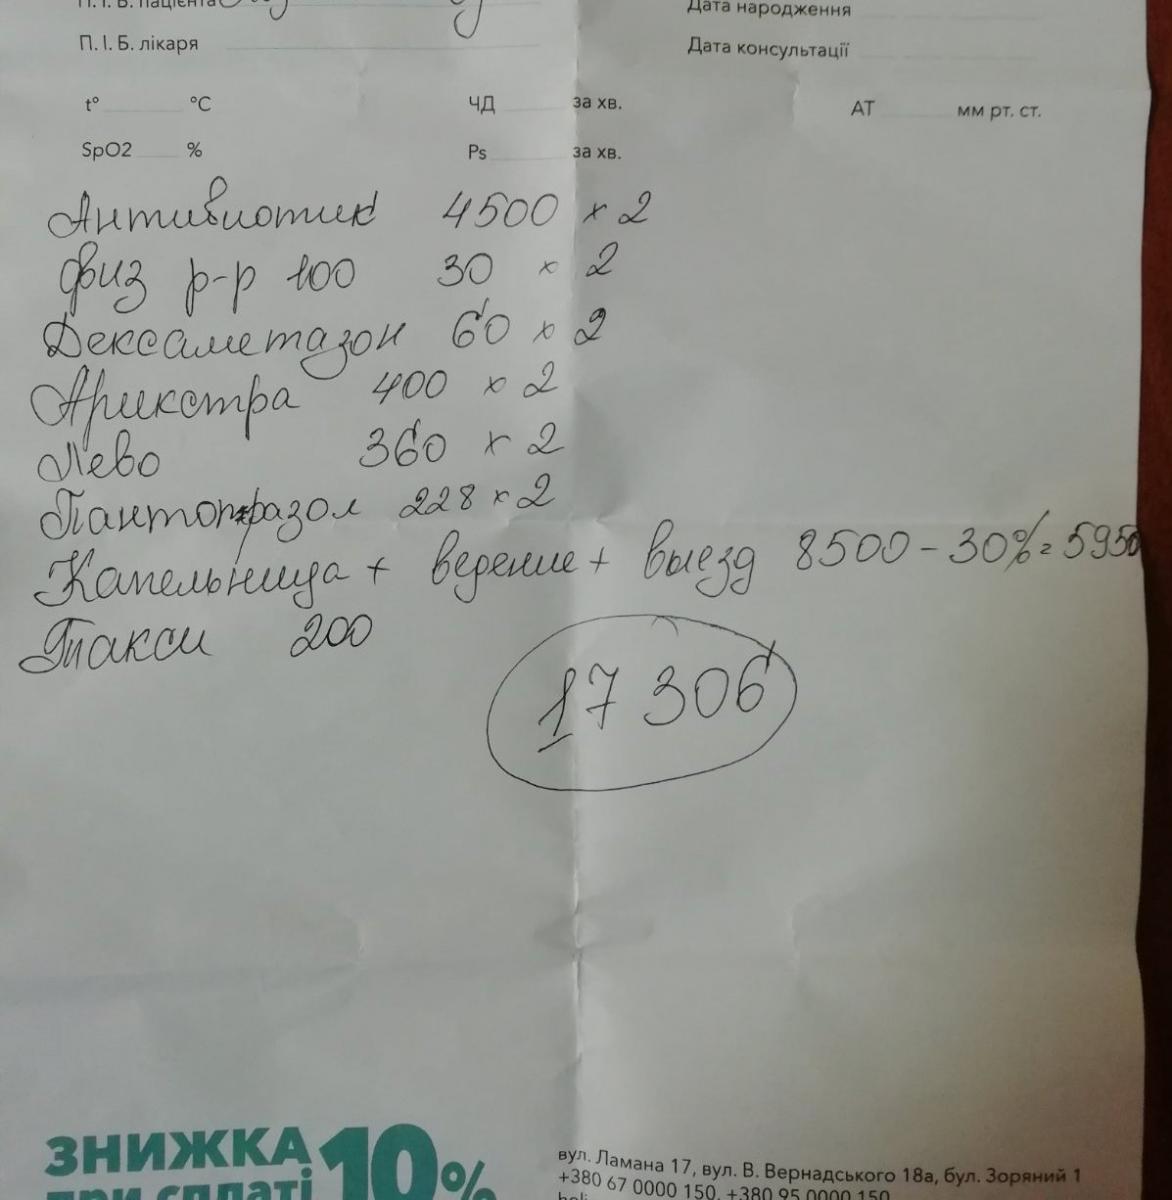 П. І. Б. пацієнта
Дата народження
П. І. Б. лікаря
Дата консультації
t° °C ЧД за хв. АТ мм рт. ст.
SpO2 % Ps за хв.
Антибиотик 4500 x 2
физ р-р 100 30 x 2
Дексаметазон 60 x 2
Арикстра 400 x 2
Лево 360 x 2
Пантопразол 228 x 2
Капельница + ведение + выезд 8500 - 30% = 5950
Такси 200
17 306
ЗНИЖКА 10%
при сплаті
вул. Ламана 17, вул. В. Вернадського 18а, бул. Зоряний 1
+380 67 0000 150, +380 95 0000 150